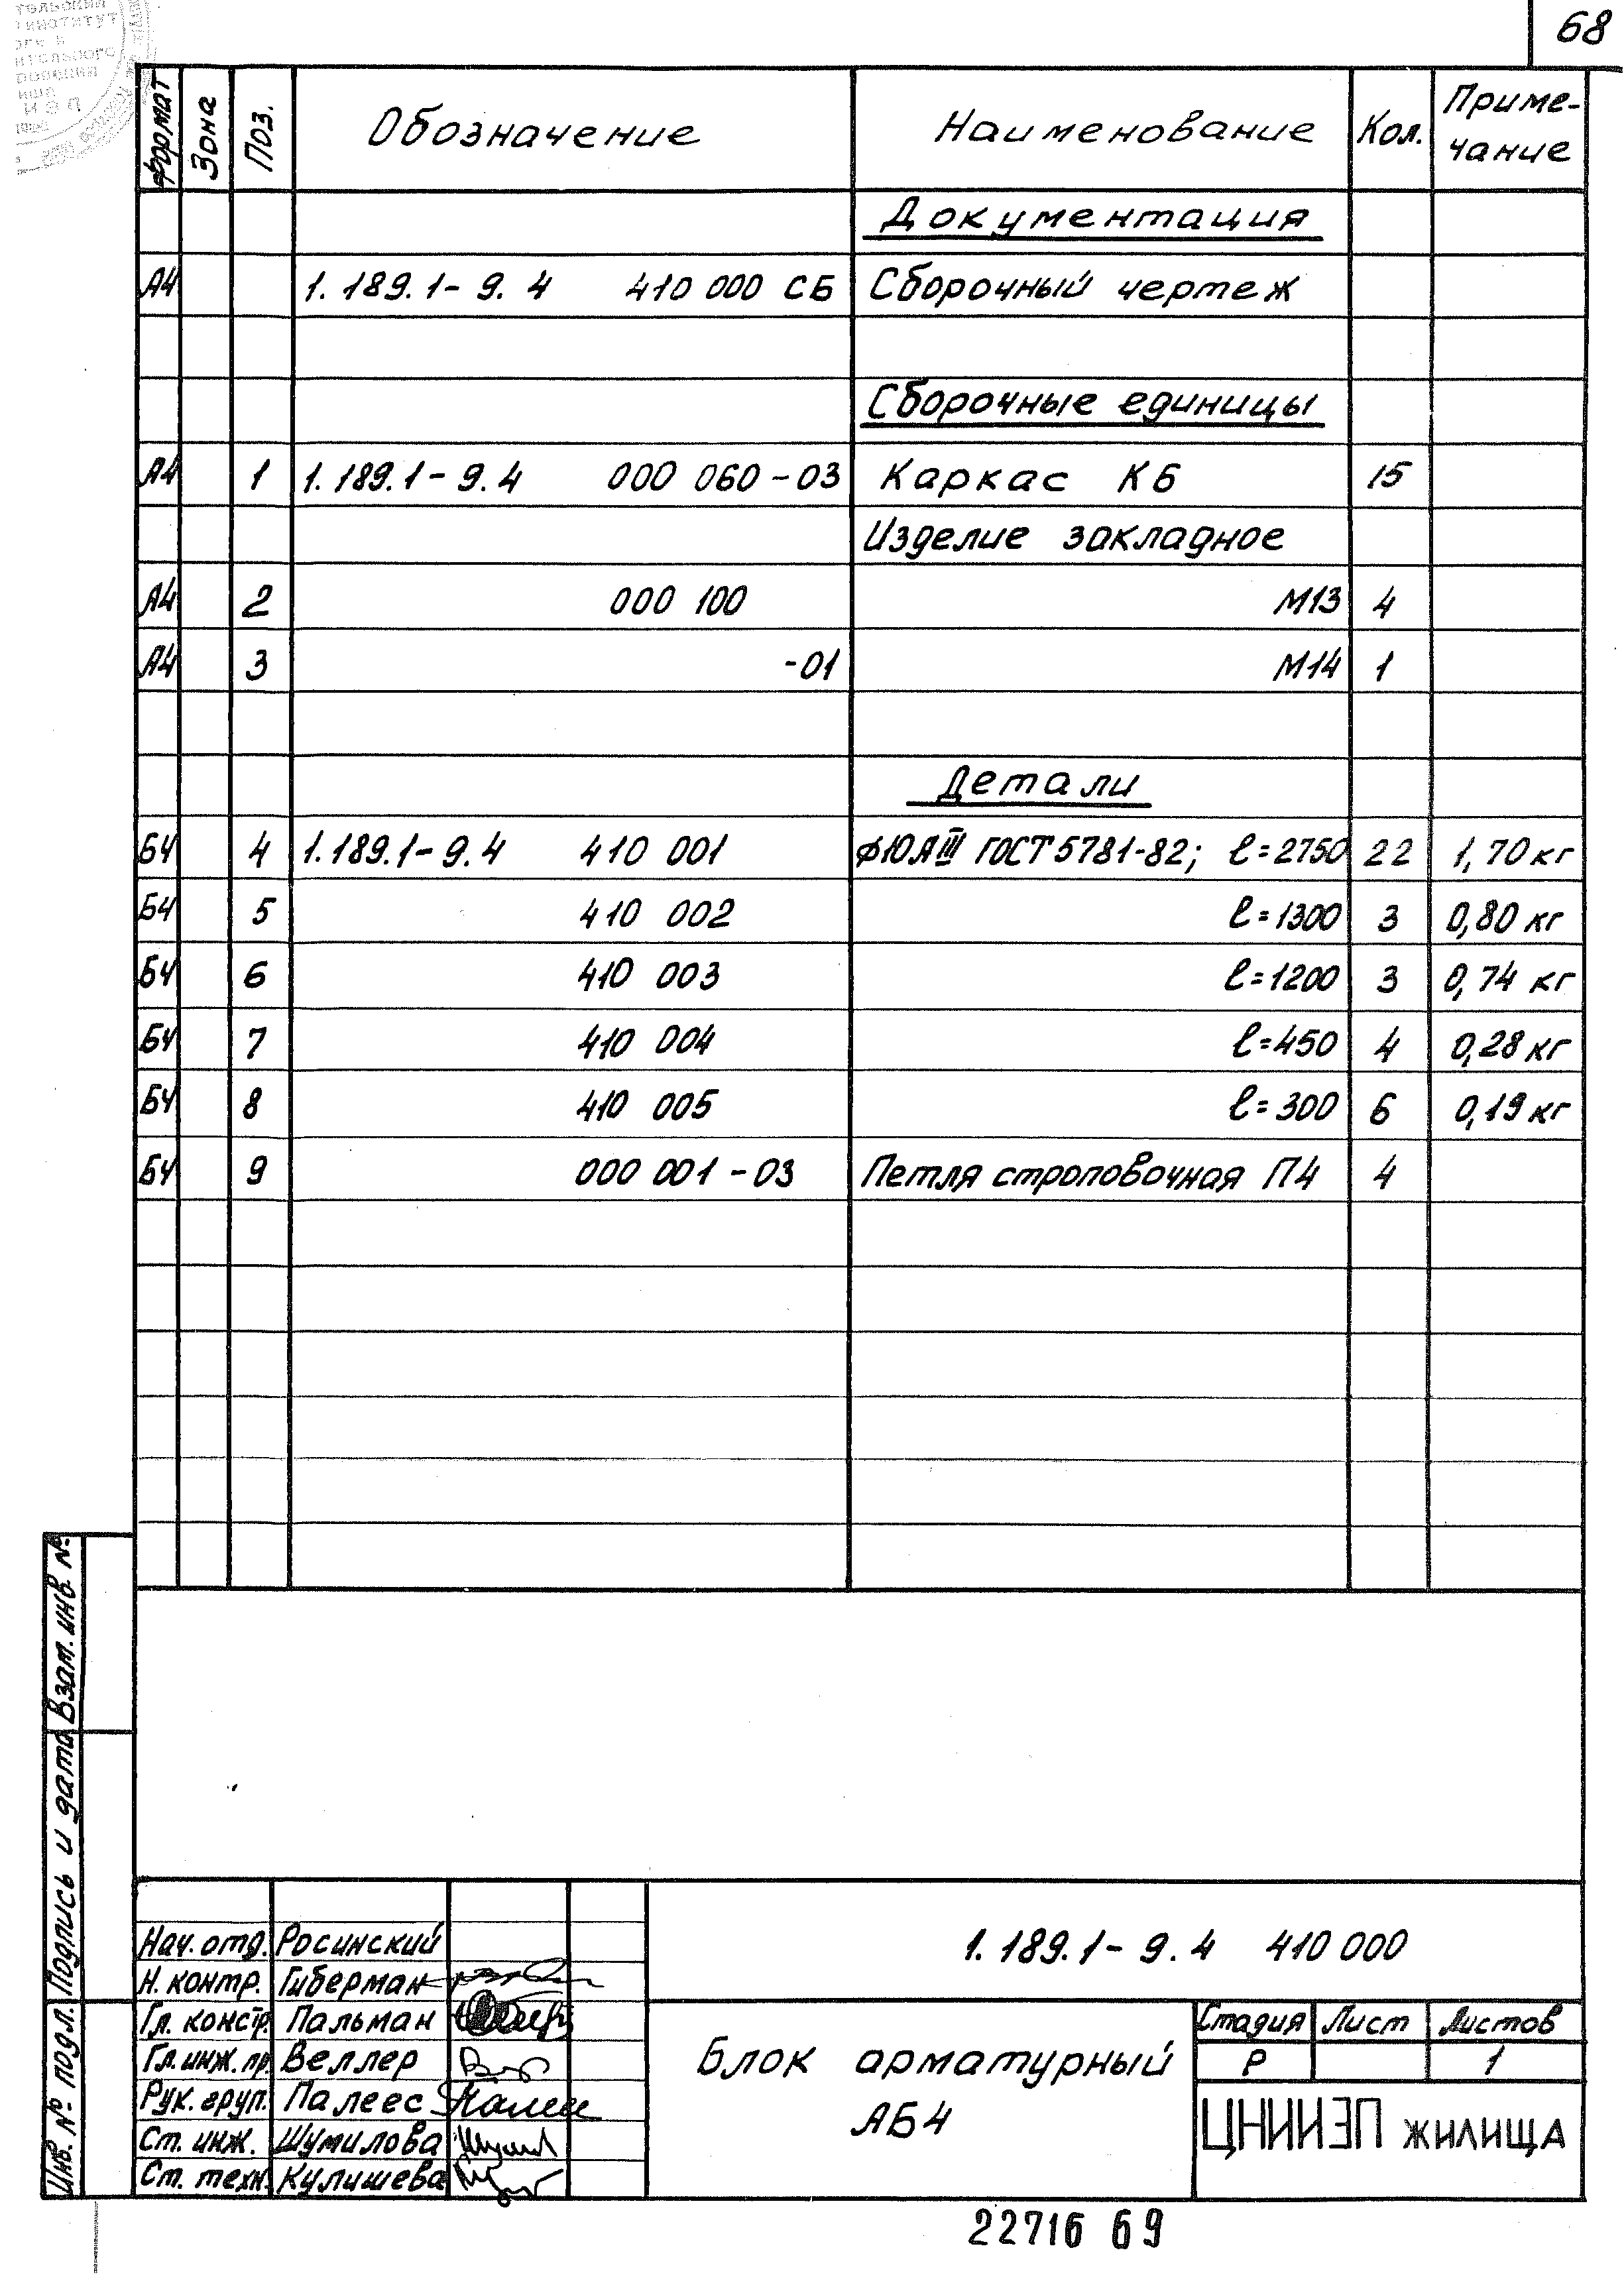 68
Формат Зона Поз. Обозначение Наименование Кол. Приме-
чание
Документация
А4 1.189.1-9.4 410 000 СБ Сборочный чертеж
Сборочные единицы
А4 1 1.189.1-9.4 000 060-03 Каркас К6 15
Изделие закладное
А4 2 000 100 М13 4
А4 3 -01 М14 1
Детали
БЧ 4 1.189.1-9.4 410 001 ф10АIII ГОСТ 5781-82; ℓ=2750 22 1,70 кг
БЧ 5 410 002 ℓ=1300 3 0,80 кг
БЧ 6 410 003 ℓ=1200 3 0,74 кг
БЧ 7 410 004 ℓ=450 4 0,28 кг
БЧ 8 410 005 ℓ=300 6 0,19 кг
БЧ 9 000 001-03 Петля строповочная П4 4
Взам. инв. №
Подпись и дата
Инв. № подл.
Нач. отд. Росинский
Н. контр. Гиберман
Гл. констр. Пальман
Гл. инж. пр. Веллер
Рук. груп. Палеес
Ст. инж. Шумилова
Ст. техн. Кулишева
1.189.1-9.4 410 000
Блок арматурный
АБ4
Стадия Лист Листов
Р 1
ЦНИИЭП жилища
22716 69